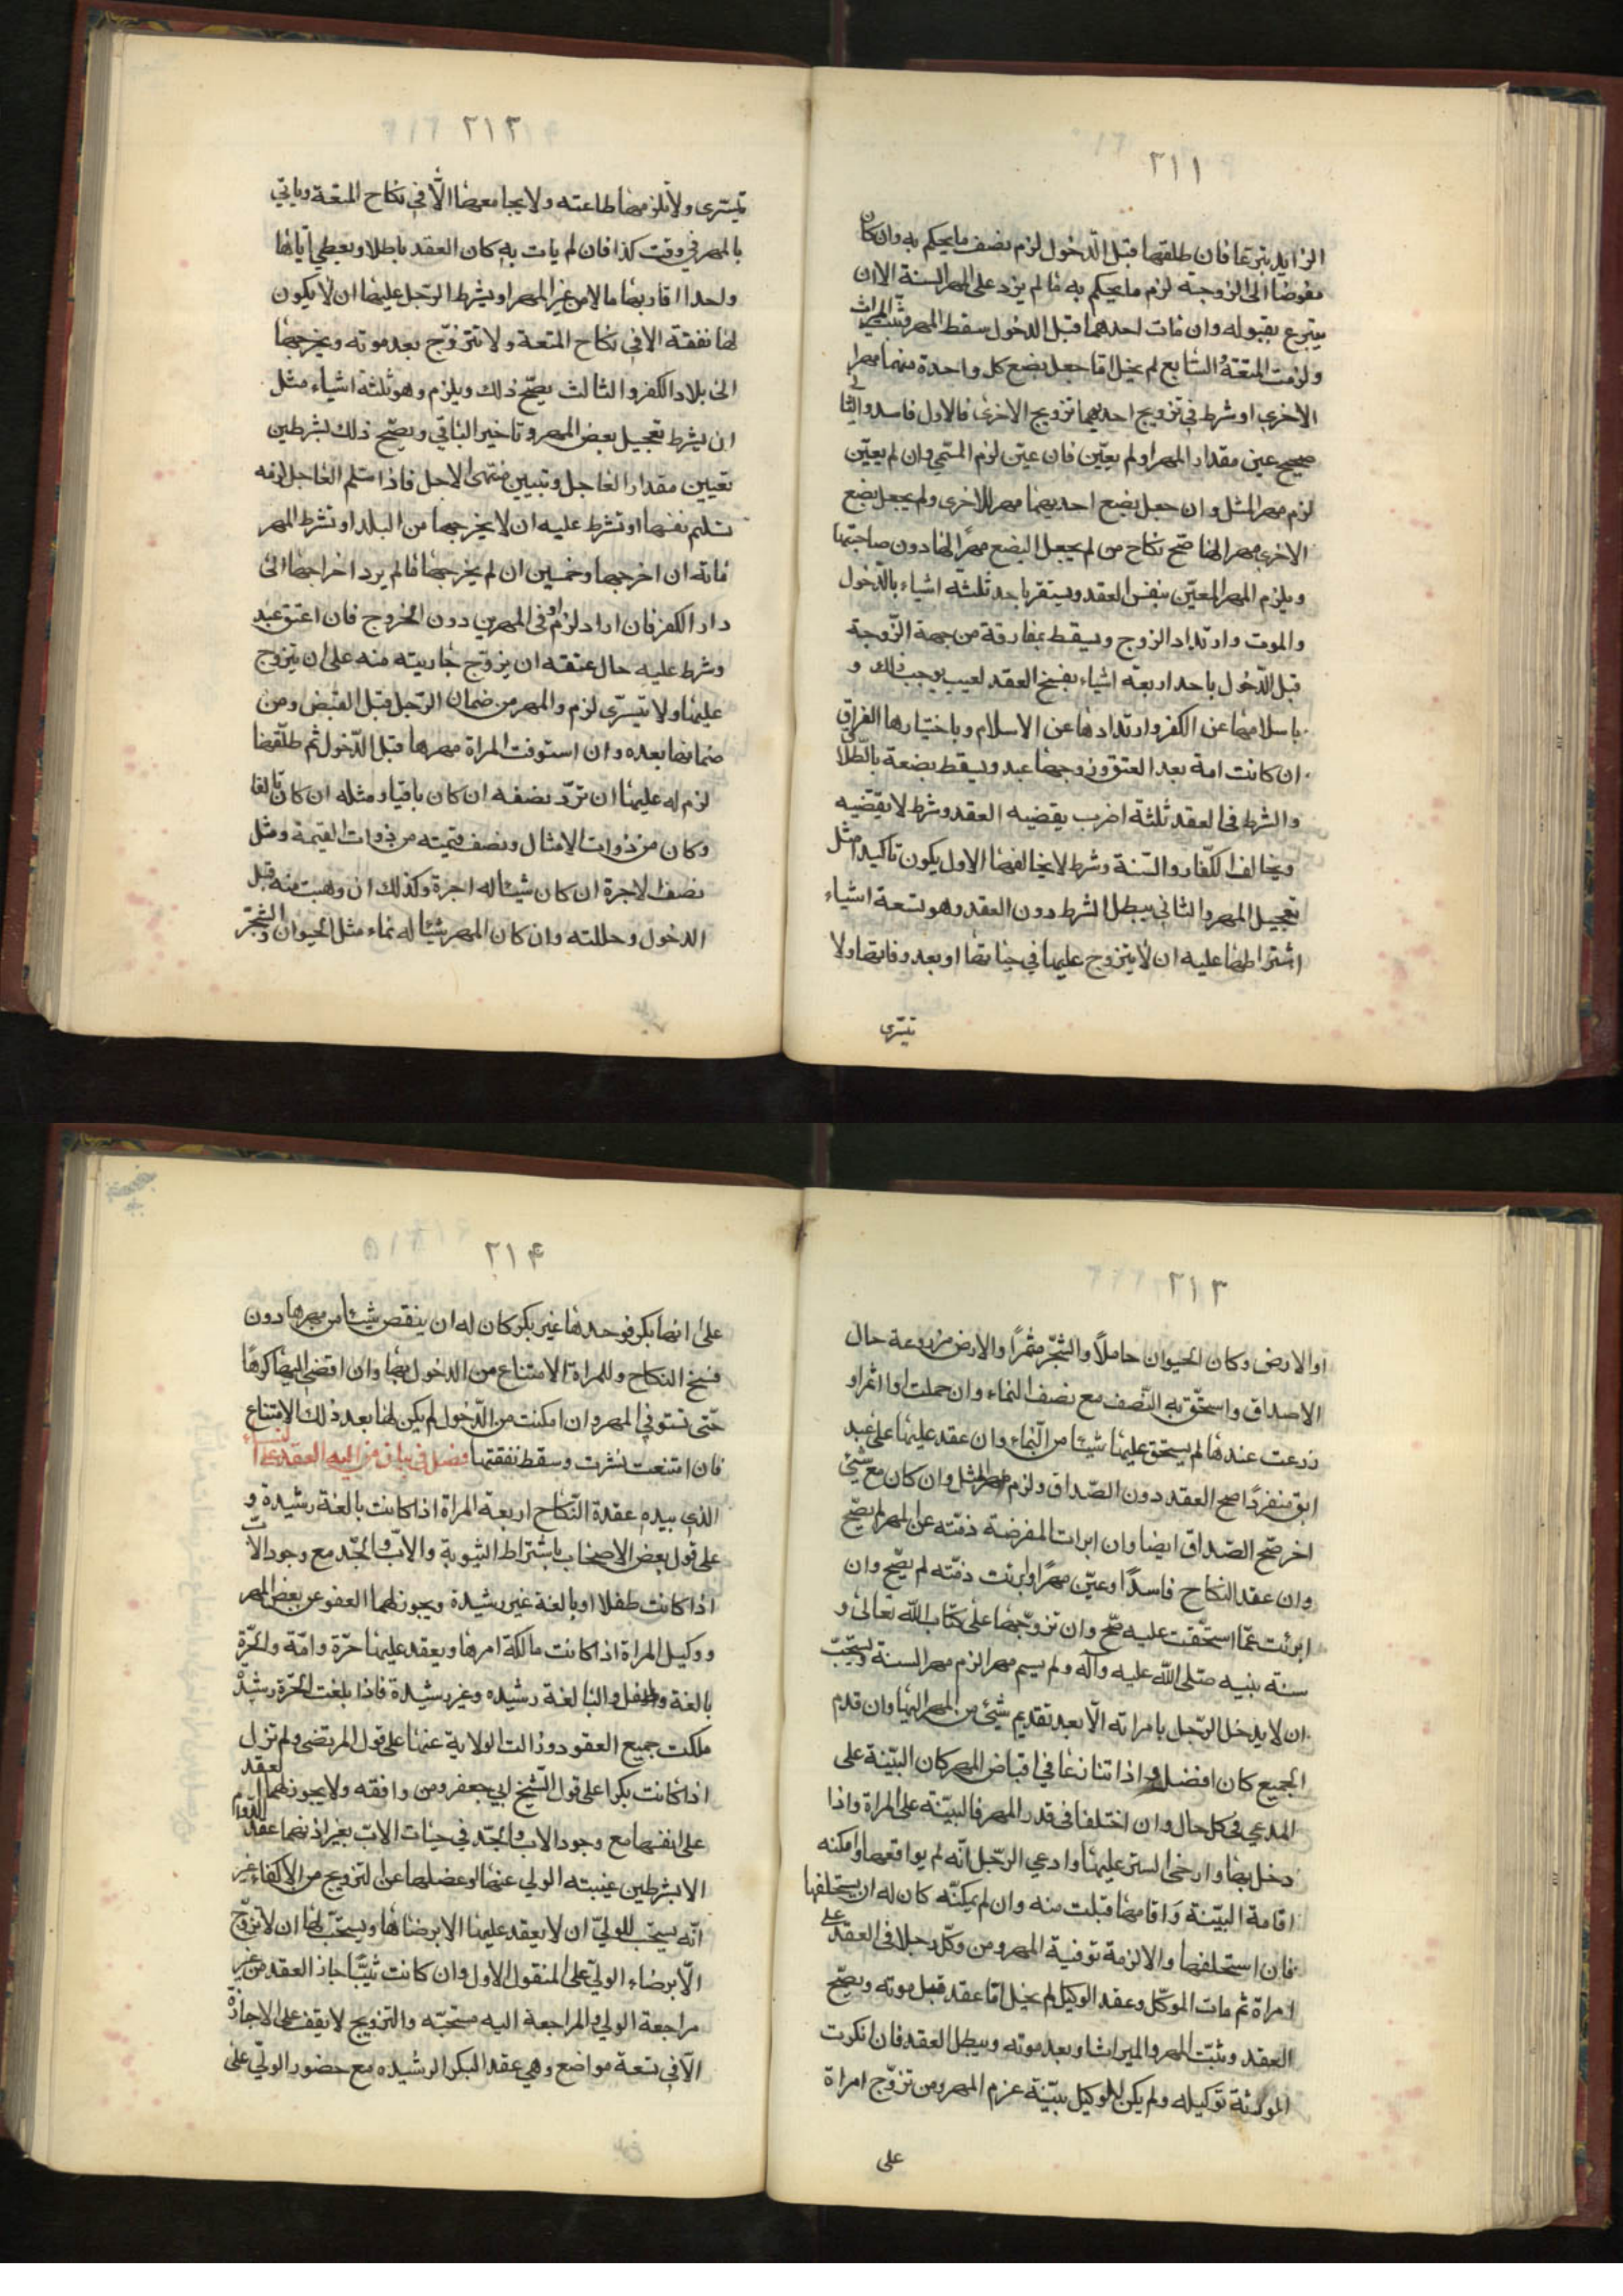 ٢١١
الزايد تبرعا فان طلقها قبل الدّخول لزم نصف ما يحكم به وان كان
مفوضا الى الزوجة لزم ما يحكم به ما لم يزد على المهر السنة الا ان
يتبرع بقبوله وان مات احدهما قبل الدخول سقط المهر وثبت الميراث
ولزمت المتعة والسّابع لم يخل اما جعل بضع كل واحدة منهما مهرا
الاخرى او شرط في تزويج احديهما تزويج الاخرى فالاول فاسد والثاني
صحيح عين مقدار المهر او لم يعيّن فان عيّن لزم المسمّى وان لم يعيّن
لزم مهر المثل وان جعل بضع احديهما مهر للاخرى ولم يجعل بضع
الاخرى مهر الها صحّ نكاح من لم يجعل البضع مهرًا لها دون صاحبتها
ويلزم المهر المعيّن بنفس العقد ويستقر باحد ثلثة اشياء بالدّخول
والموت وارتداد الزوج ويسقط بمفارقة من جهة الزّوجة
قبل الدّخول باحد اربعة اشياء بفسخ العقد لعيب يوجب ذلك و
باسلامها عن الكفر وارتدادها عن الاسلام وباختيارها الفراق
ان كانت امة بعد العتق وزوجها عبد ويسقط بضعة بالطّلا
والشرط في العقد ثلثة اضرب يقضيه العقد وشرط لا يقتضيه
ويخالف الكفار والسّنة وشرط لا يخالفها الاول يكون تاكيدا مثل
تعجيل المهر والثاني يبطل الشرط دون العقد وهو تسعة اشياء
اشتراطها عليه ان لا يتزوج عليها في حياتها او بعد وفاتها ولا
تيسّرى
٢١٢
تيسّرى ولا تلزمها طاعته ولا يجامعها الّا في نكاح المتعة وياتي
بالمهر في وقت كذا فان لم يات به كان العقد باطلا ويعطي اباها
واحدا اقاربها مالا من غير المهر او يشرط الرّجل عليها ان لا يكون
لها نفقة الا في نكاح المتعة ولا تتزوّج بعد موته ويخرجها
الى بلاد الكفر والثالث يصحّ ذلك ويلزم وهو ثلثة اشياء مثل
ان يشرط تعجيل بعض المهر وتاخير الباقي ويصحّ ذلك بشرطين
تعيين مقدار العاجل وتبيين منتهى الاجل فاذا سلم العاجل لزمه
تسليم نفسها او تشرط عليه ان لا يخرجها من البلد او تشرط المهر
مائة ان اخرجها وخمسين ان لم يخرجها فما لم يرد اخراجها الى
دار الكفر فان اراد لزم اوفى المهرين دون الخروج فان اعتق عبد
وشرط عليه حال عتقه ان يزوّج جاريته منه على ان يتزوج
عليها ولا تيسّرى لزم والمهر من ضمان الرّجل قبل القبض ومن
ضمانها بعده وان استوفت المراة مهرها قبل الدّخول ثم طلّقها
لزم له عليها ان تردّ نصفه ان كان باقيا ومثله ان كان تالفا
وكان من ذوات الامثال ونصف قيمته من ذوات القيمة ومثل
نصف الاجرة ان كان شيئا له اجرة وكذلك ان وهبت منه قبل
الدخول وحللته وان كان المهر شيئا له نماء مثل الحيوان والشّجر
٢١٣
او الارض وكان الحيوان حاملًا والشّجر مثمرًا والارض مزروعة حال
الاصداق واستحق به النّصف مع نصف النماء وان حملت او اثمر او
زرعت عندها لم يستحق عليها شيئا من النّماء وان عقد عليها على عبد
ابق منفردًا صح العقد دون الصّداق ولزم مهر المثل وان كان مع شيئ
اخر صحّ الصّداق ايضا وان ابرات المفرضة ذمّته عن المهر لم يصّح
وان عقد النكاح فاسدًا وعيّن مهرًا وابرئت ذمّته لم يصّح وان
ابرئت عمّا استحقت عليه صّح وان تزوّجها على كتاب اللّه تعالى و
سنة نبيه صلى اللّه عليه وآله ولم يسم مهرا لزم مهر السنة ويستحبّ
ان لا يدخل الرّجل بامراته الّا بعد تقديم شيئ من المهر اليها وان قدم
الجميع كان افضل واذا تنازعا في اقباض المهر كان البيّنة على
المدعي في كل حال وان اختلفا في قدر المهر فالبيّنة على المراة واذا
دخل بها وارخى الستر عليها وادعي الرّجل انّه لم يواقعها وامكنه
اقامة البيّنة واقامها قبلت منه وان لم يمكنّه كان له ان يستحلفها
فان استحلفها والا لزمة توفية المهر ومن وكّل رجلا في العقد على
امراة ثم مات الموكّل وعقد الوكيل لم يخل امّا عقد قبل موته ويصّح
العقد ويثبّت المهر والميراث او بعد موته ويبطل العقد فان انكرت
المورثة توكيله ولم يكن للوكيل بيّنة عزم المهر ومن تزوّج امراة
على
٢١۴
على انها بكر فوجدها غير بكر كان له ان ينقص شيئا من مهرها دون
فسخ النكاح وللمراة الامتناع من الدخول بها وان افتضى اليها كرهًا
حتّى تستوفي المهر وان امكنت من الدّخول لم يكن لها بعد ذلك الامتناع
فان امتنعت نشزت وسقط نفقتها فصل في بيان من اليه العقد على النساء
الذي بيده عقدة النّكاح اربعة المراة اذا كانت بالغة رشيدة و
على قول بعض الاصحاب باشتراط الثيوبة والابّ والجّد مع وجود الابّ
اذا كانت طفلا او بالغة غير رشيدة ويجوز لهما العفو عن بعض المهر
ووكيل المراة اذا كانت مالكة امرها ويعقد عليها حرّة وامّة والحرّة
بالغة وطفل والبالغة رشيده وغير رشيدة فاذا بلغت الحرّة رشيدة
ملكت جميع العقود وزالت الولاية عنها على قول المرتضى ولم تزل
اذا كانت بكرا على قول الشّيخ ابي جعفر ومن وافقه ولا يجوز لهما العقد
على انفسها مع وجود الاب والجّد في حيات الابّ بغير اذنهما عقد الدوام
الا بشرطين غيبته الولي عنها وعضلها عن التزويج من الاكفاء غير
انّه يستحّب للوليّ ان لا يعقد عليها الا برضاها ويستحّب لها ان لا تزوّج
الّا برضاء الوليّ على المنقول الاول وان كانت ثيّبًا جاز العقد من غير
مراجعة الولي والمراجعة اليه مستحبّه والتزويج لا يقف على الاجازة
الّا في تسعة مواضع وهي عقد البكر الرشيده مع حضور الوليّ على